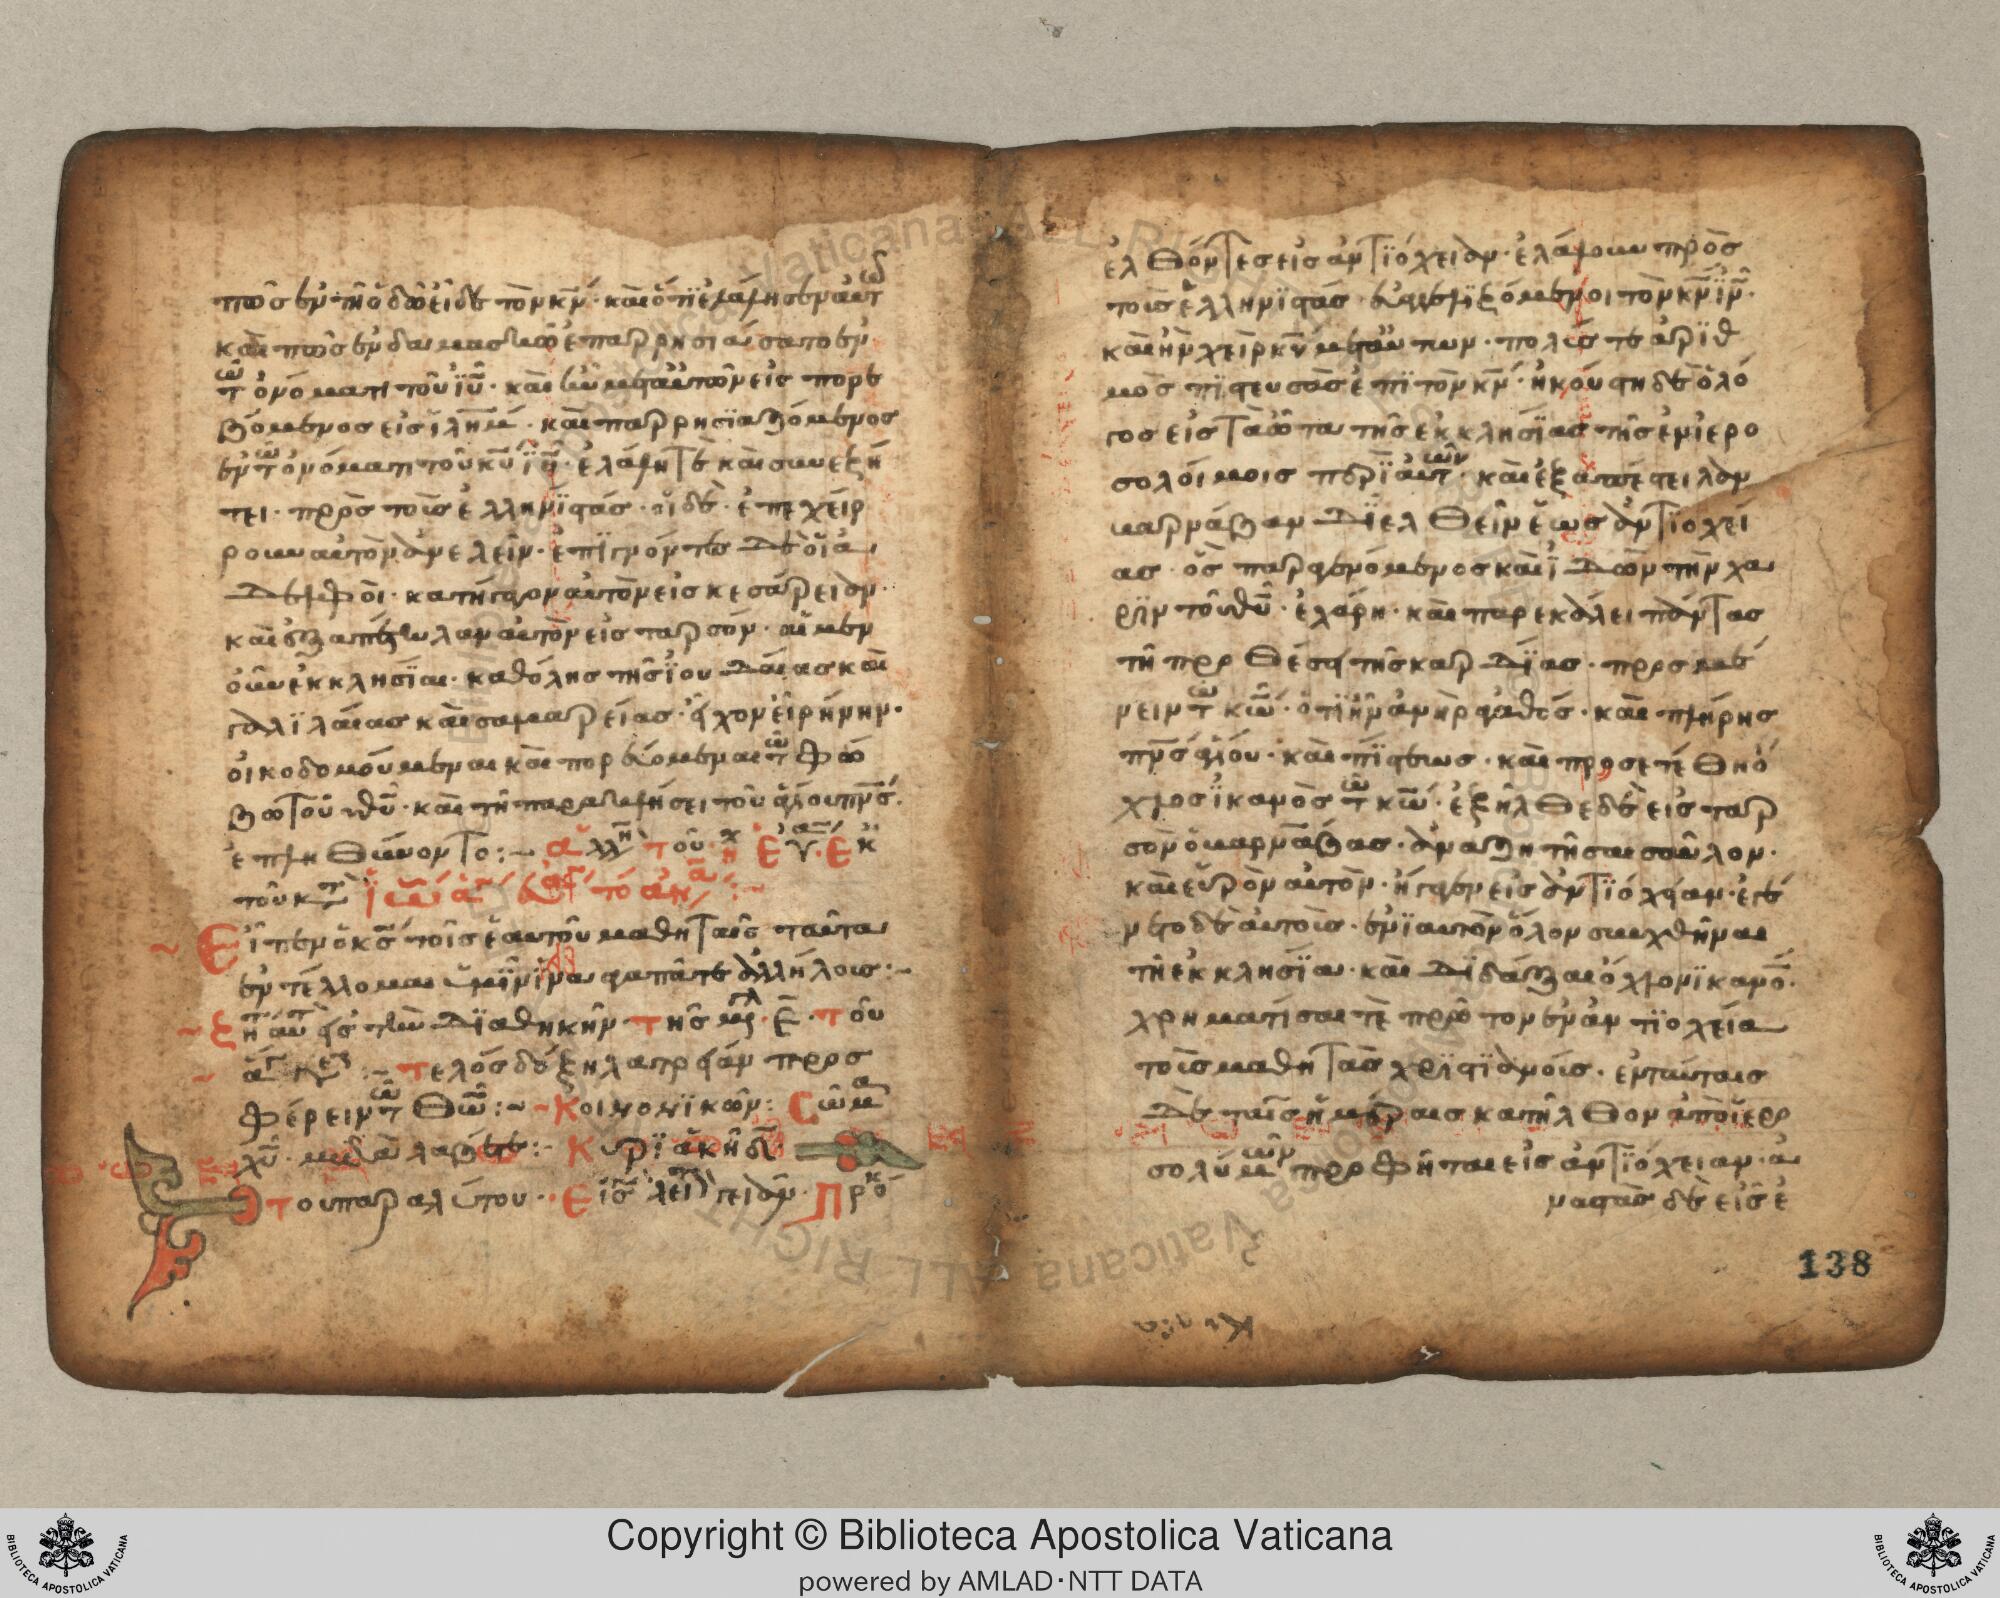 πῶς ἐν τῆ ὁδῶ εἶδε τὸν κν̄· καὶ ὅτι ἐλάλησεν αὐτῶ
καὶ πῶς ἐν δαμασκῶ ἐπαρρησιάσατο ἐν
τῶ ὀνόματι τοῦ ιῡ· καὶ ἦν μετ αὐτῶν εἰς πορε
βόμενος εἰς ιλημ· καὶ παρρησϊαζόμενος
ἐν τῶ ὀνόματι τοῦ κῡ ιῡ· ἐλάλητε καὶ συνεζή
τει· πρὸς τοῖς ἑλληνϊστάς· οἱ δὲ· ἐπεχείρ
ρουν αὐτὸν ἀνελεῖν· ἐπϊγνόντες δὲ ὁἱ ἀ
δελφοὶ· κατήγαγον αὐτὸν εἰς κεσάρειαν·
καὶ ἐξαπέστιλαν αὐτὸν εἰς ταρσόν· αἱ μὲν
οὖν ἐκκλησίαι· καθόλης τῆς ϊουδαίας καὶ
γαλϊλαίας καὶ σαμαρείας· ἦχον εἰρήνην·
οἰκοδομούμεναι καὶ πορευόμεναι τῶ φό
βω τοῦ θῡ· καὶ τῆ παρακλήσει τοῦ ἁγίου πνς̄
ἐπληθύνοντο:~ ἄλλη τοῦ
τοῦ κατὰ ἰω
Εἶπεν ὁ κς̄ τοῖς ἑαυτοῦ μαθηταῖς ταῦτα
ἐντέλλομαι ὑμῖν ἵνα ἀγαπᾶτε ἀλλήλοις:~
τὴν δϊαθήκην τῆς τοῦ
τελός δόξη λατρείαν προσ
φέρειν τῶ θῶ:~ ~Κοινονϊκῶν: Σῶμα
χῡ· μεταλάβετε:~ Κυρϊακῆ δ̄
τοῦ παραλύτου·· Εἰς λειτ
ἐλθόντες εἰς ἀντϊόχειαν· ἐλάλουν πρὸς
τοῖς ἑλληνϊστάς· εὐαγγελϊζόμενοι τὸν κν̄ ιν̄·
καὶ ἦν χεὶρ κῡ μετ αὐτων· πολύς τε ἀρϊθ
μὸς πϊστευσὰς ἐπϊ τὸν κν̄· ἠκούσθη δὲ ὁ λό
γος εἰς τὰ ὦτα τῆς ἐκκλησίας τῆς ἐν ϊερο
σολοίμοις περϊ αὐτῶν· καὶ ἐξαπέστειλαν
βαρνάβαν δϊελθεῖν ἕως ἀντϊοχεί
ας· ὃς παραγενόμενος καὶ ϊδὼν τὴν χά
ρϊν τοῦ θῡ· ἐχάρη· καὶ παρεκάλει πάντας
τῆ προθέσει τῆς καρδϊας· προσμέ
νειν τῶ κῶ· ὅτι ἦν ἀνὴρ ἀγαθός· καὶ πλήρης
πνς̄ ἁγίου· καὶ πίστεως· καὶ προσετέθη ὄ
χλος ϊκανὸς τῶ κῶ· ἐξῆλθε δὲ εἰς ταρ
σὸν ὁ βαρνάβας· ἀναζητῆσαι σαῦλον·
καὶ εὑρὸν αὐτὸν· ἤγαγεν εἰς ἀντϊόχειαν· ἐγέ
νετο δὲ αὐτοὺς· ἐνϊαυτὸν ὅλον συναχθῆναι
τῆ ἐκκλησίϊα· καὶ δϊδάξαι ὄχλον ϊκανόν·
χρηματίσαι τὲ πρῶτον ἐν ἀντιοχεία
τοῖς μαθητὰς χρϊστϊανοίς· ἐν ταύταις
δὲ ταῖς ἡμέραις κατῆλθον ἀπὸ ϊερο
σολύμων προφῆται εἰς ἀντϊόχειαν· ἀ
ναστὰς δὲ εἷς ἐ
138
Copyright © Biblioteca Apostolica Vaticana
powered by AMLAD·NTT DATA